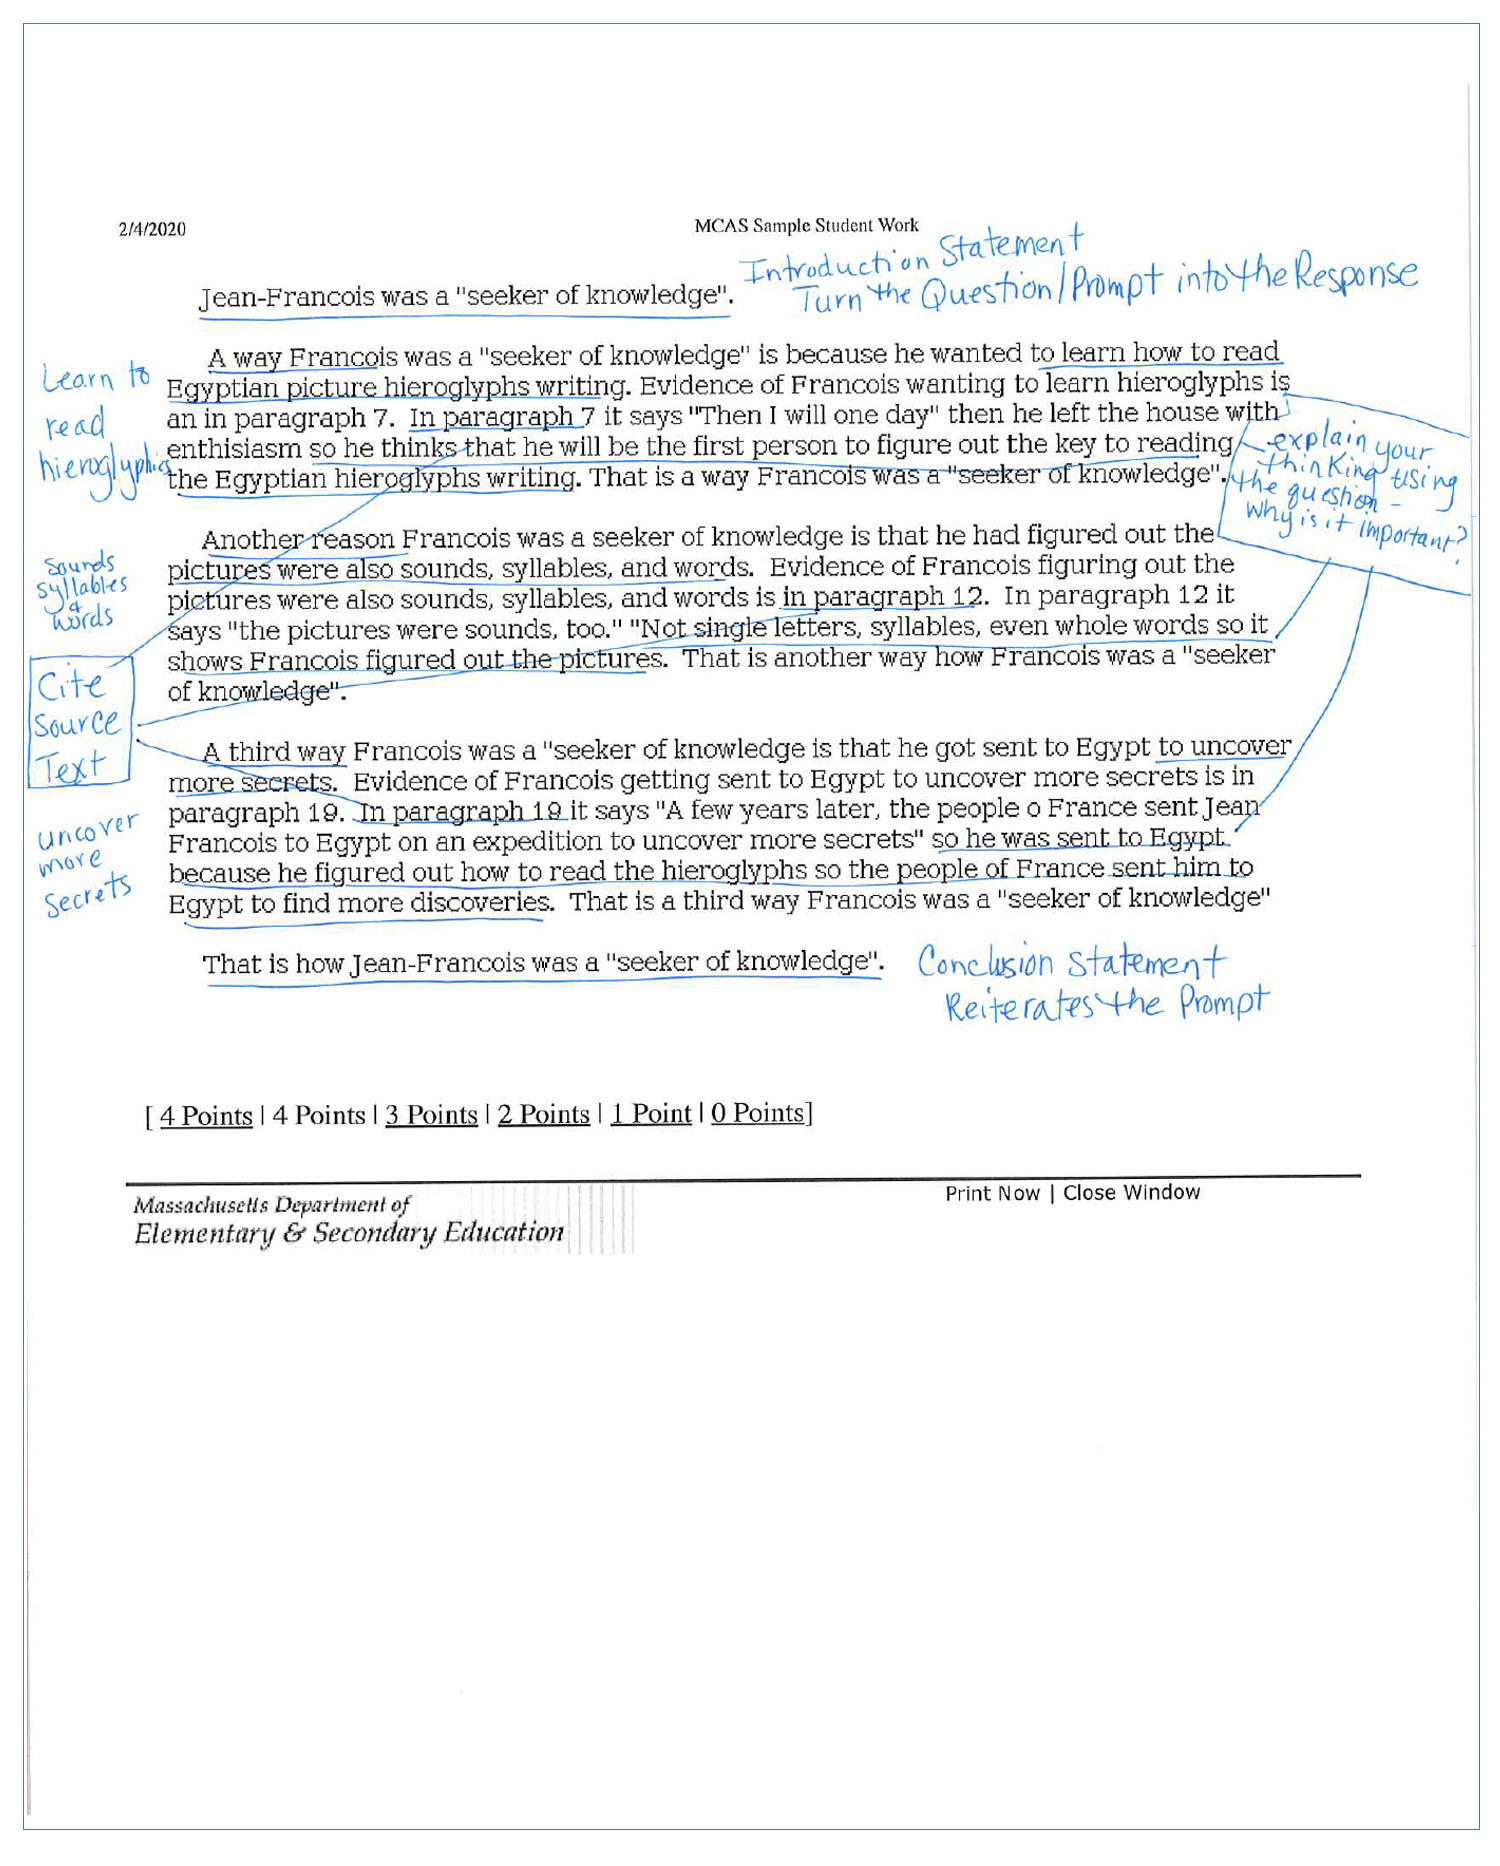 2/4/2020
MCAS Sample Student Work
Introduction Statement
Turn the Question/Prompt into the Response
Jean-Francois was a "seeker of knowledge".
A way Francois was a "seeker of knowledge" is because he wanted to learn how to read
Egyptian picture hieroglyphs writing. Evidence of Francois wanting to learn hieroglyphs is
an in paragraph 7. In paragraph 7 it says "Then I will one day" then he left the house with
enthisiasm so he thinks that he will be the first person to figure out the key to reading
the Egyptian hieroglyphs writing. That is a way Francois was a "seeker of knowledge".
Learn to
read
hieroglyphics
explain your
thinking using
the question -
Why is it important?
Another reason Francois was a seeker of knowledge is that he had figured out the
pictures were also sounds, syllables, and words. Evidence of Francois figuring out the
pictures were also sounds, syllables, and words is in paragraph 12. In paragraph 12 it
says "the pictures were sounds, too." "Not single letters, syllables, even whole words so it
shows Francois figured out the pictures. That is another way how Francois was a "seeker
of knowledge".
Sounds
syllables
+
words
Cite
Source
Text
A third way Francois was a "seeker of knowledge is that he got sent to Egypt to uncover
more secrets. Evidence of Francois getting sent to Egypt to uncover more secrets is in
paragraph 19. In paragraph 19 it says "A few years later, the people o France sent Jean
Francois to Egypt on an expedition to uncover more secrets" so he was sent to Egypt
because he figured out how to read the hieroglyphs so the people of France sent him to
Egypt to find more discoveries. That is a third way Francois was a "seeker of knowledge"
uncover
more
Secrets
That is how Jean-Francois was a "seeker of knowledge".
Conclusion Statement
Reiterates the Prompt
[ 4 Points | 4 Points | 3 Points | 2 Points | 1 Point | 0 Points]
Massachusetts Department of
Elementary & Secondary Education
Print Now | Close Window